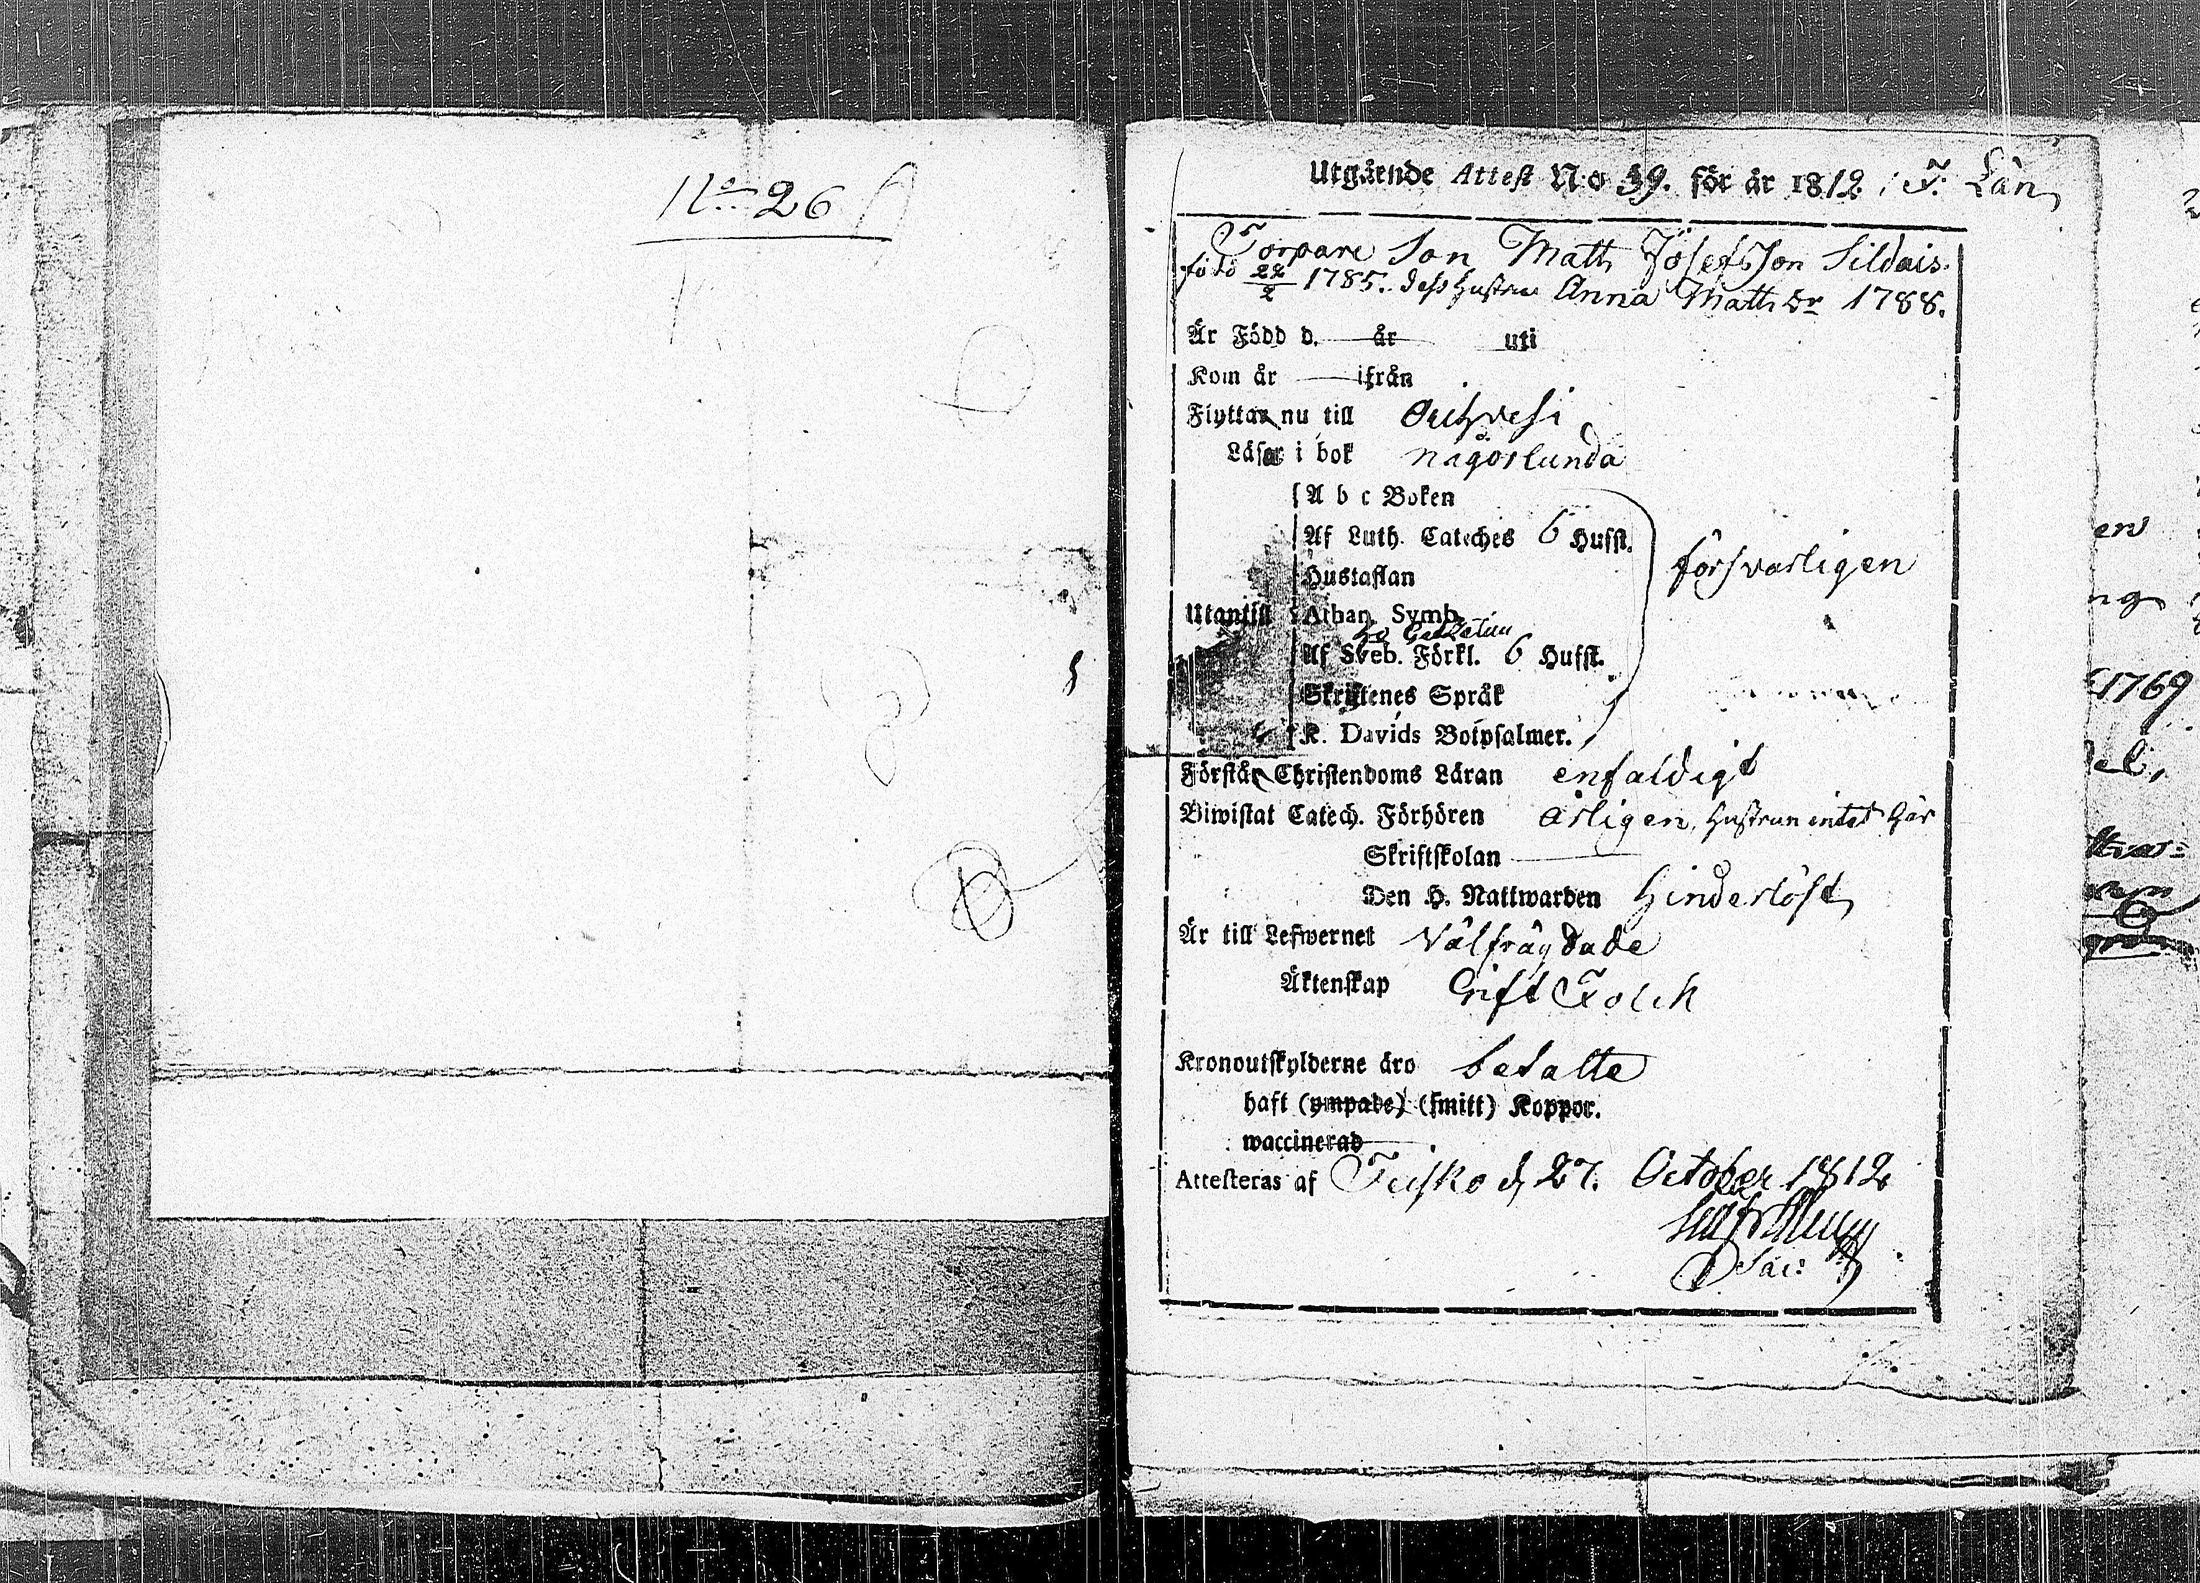 No 26
Utgående Attest N:o 39. för år 1812
Torpare Son Matts Josefsson Sildais.
född 22/2 1785. dess hustru Anna Matts dr 1788.
Är Född d. år uti
Kom år ifrån
Flyttar nu till
Läser i bok någorlunda
A b c Boken
Af Luth. Cateches 6 Hufst.
Hustaflan
försvarligen
Utantill Athan. Symb.
Af Sveb. Förkl. 6 Hufst.
Skriftenes Språk
K. Davids Botpsalmer.
Förstår Christendoms Läran enfaldigt
Biwistat Catech. Förhören årligen, hustrun intet här
Skriftskolan
Den H. Nattwarden hinderlöst
Är till Lefwernet Välfrägdade
Äktenskap Gift Folck
Kronoutskylderne äro betalte
haft (ympade) (smitt) Koppor.
waccinerad
Attesteras af Teisko d. 27. October 1812
en
ng
1769